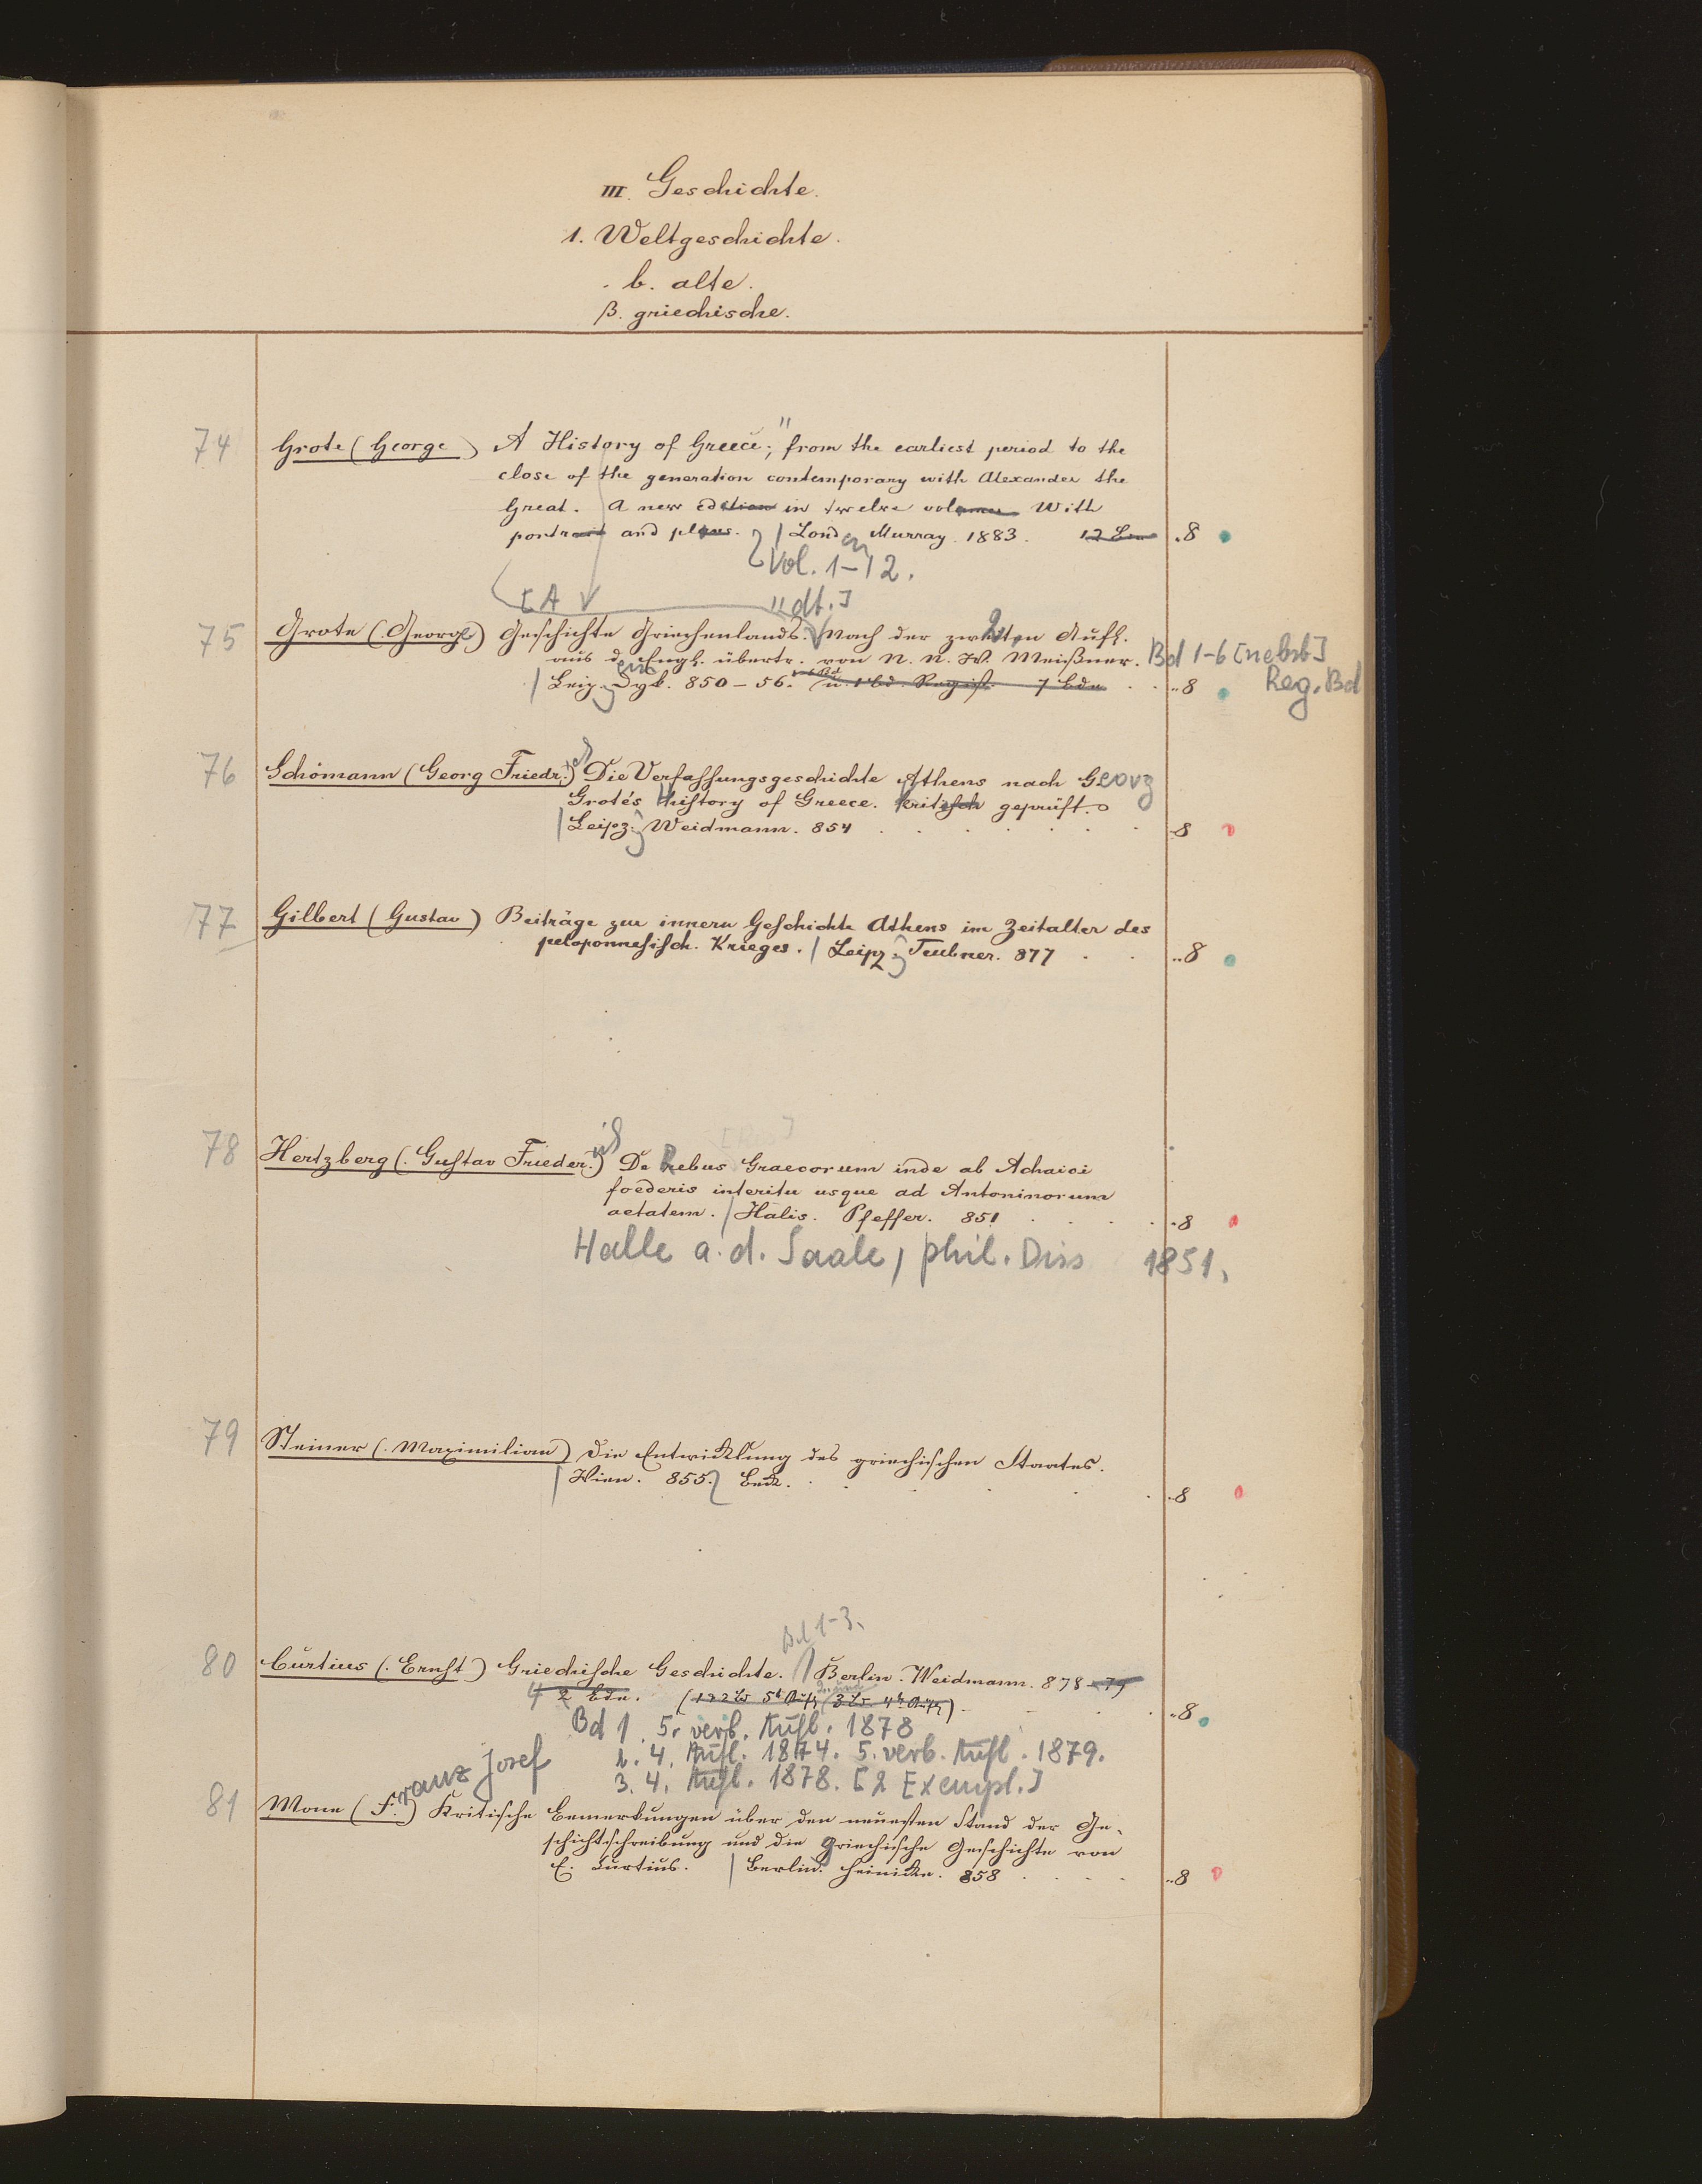 III. Geschichte.
1. Weltgeschichte.
b. alte.
β. griechische.
74 Grote (George) A History of Greece; from the earliest period to the
close of the generation contemporary with Alexander the
Great. A new edition in twelve volumes With
portrait and plans. | Lond en Murray. 1883. 12 .8
Vol. 1-12.
[A "dt.]
75 Grote (Georg) Geschichte Griechenlands. Nach der zweiten 2. Aufl.
aus d. en Engl. übertr. von N. N. W. Meißner. Bd 1-6 [nebst]
| Leipz. Dyk. 850-56. u. 1 Bd. Regist. 7 Bde ..8 Reg. Bd
76 Schömann (Georg Friedr.) Die Verfassungsgeschichte Athens nach Georg
Grote's History of Greece. kritisch geprüft.
| Leipz. Weidmann. 854 .8
77 Gilbert (Gustav) Beiträge zur innern Geschichte Athens im Zeitalter des
peloponnesisch. Krieges. | Leipz. Teubner. 877 ..8
78 Hertzberg (Gustav Frieder.) De Rebus Graecorum inde ab Achaici
foederis interitu usque ad Antoninorum
aetatem. | Halis. Pfeffer. 851 .8
Halle a. d. Saale, phil. Diss 1851.
79 Steiner (Maximilian) Die Entwicklung des griechischen Staates.
| Wien. 855. Beck. .8
Bd 1-3.
80 Curtius (Ernst) Griechische Geschichte. | Berlin. Weidmann. 878-79
4 2 Bde. (1 2 Bd 5t Aufl. 3 Bd. 4t Aufl.) ..8
Bd 1. 5. verb. Aufl. 1878
2. 4. Aufl. 1874. 5. verb. Aufl. 1879.
3. 4. Aufl. 1878. [2 Exempl.]
ranz Josef
81 Mone (F.) Kritische Bemerkungen über den neuesten Stand der Ge-
schichtschreibung und die Griechische Geschichte von
E. Curtius. | Berlin. Heinicke. 858 ..8